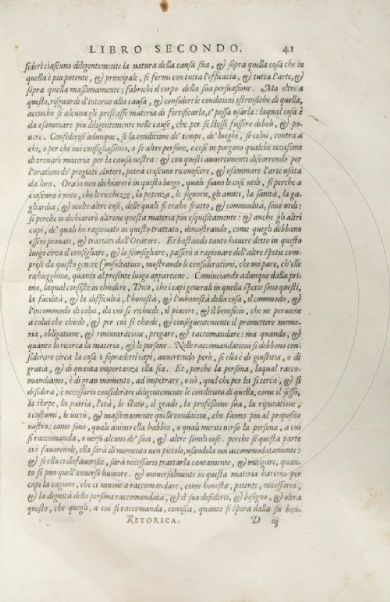 LIBRO SECONDO. 41
sideri ciascuno diligentemente la natura della causa sua, & sopra quella cosa che in
quella è piu potente, & principale, si fermi con tutta l'efficacia, & tutta l'arte, &
sopra quella massimamente, fabrichi il corpo della sua persuasione. Ma oltre a
questo, risguardi d'intorno alla causa, & consideri le conditioni estrinsiche di quella,
accioche se alcuna gli prestasse materia di fortificarla, e' possa usarla: laqual cosa è
da esaminare piu diligentemente nelle cause, che per se stesse fussero deboli, &
vere. Considerisi adunque, se la conditione de' tempi, de' luoghi, se colui, contra a
chi, o per che noi consigliamo, o se altre persone, o cose ne porgono qualche occasione
di trovare materia per la causa nostra: & con questi avvertimenti discorrendo per
l'orationi de' pregiati Autori, potrà ciascuno riconoscere, & esaminare l'arte usata
da loro. Ora io non dichiarerò in questo luogo, quali siano le cose utili, si perche a
ciascuno è noto, che le ricchezze, la potenza, le signorie, gli amici, la sanità, la
gagliardia, & molte altre cose, delle quali si trahe frutto, & commodità, sono utili:
si perche io dichiarerò altrove questa materia piu esquisitamente: & anche gli altri
capi, de' quali ho ragionato in questo trattato, dimostrando, come quegli debbano
essere provati, & trattati dall'Oratore. Et bastando tanto havere detto in questo
luogo circa il consigliare, & lo sconsigliare, passerò a ragionare dell'altre spetie
comprese da questo genere Consultativo, mostrando le considerationi, che mi pare,
quanto al presente luogo appartiene. Cominciando adunque dalla
prima, laqual consiste in chiedere, Dico, che i capi generali in quella spetie sono questi,
la facultà, & la difficultà, l'honestà, & l'inhonestà della cosa, il commodo, &
l'incommodo di colui, da chi si richiede, il piacere, & il beneficio, che ne perviene
a colui che chiede, & per cui si chiede, & conseguentemente il promettere
memoria, obligatione, & rimuneratione, pregare, & raccomandare: ma quando, &
quanto lo ricerca la materia, & le persone. Nelle raccomandationi si debbono
considerare circa la cosa i sopradetti capi, avvertendo però, se ella è di giustitia, o di
gratia, & di quanta importanza ella sia. Et, perche la persona, laqual
raccomandiamo, è di gran momento, ad impetrare, o nò, quel che per lei si cerca, & si
desidera, è necessario considerare diligentemente le conditioni di quella, come il sesso,
la stirpe, la patria, l'età, lo stato, il grado, la professione sua, la riputatione,
i costumi, le virtù, & massimamente quelle conditioni, che fanno piu al proposito
nostro: come sono, quale animo ella habbia, o quali meriti verso la persona, a cui
si raccomanda, o verso alcuno de' suoi, & altre simili cose. perche se questa parte
ci è favorevole, ella sarà di momento non piccolo, usandola noi accommodatamente:
& se ella ci disfavorisce, sarà necessario trattarla cautamente, & mitigare,
quanto si può quell'avverso humore. & universalmente in questa materia haremo per
capi la cagione, che ci muove a raccomandare, come honesta, potente, necessaria,
& la dignità della persona raccomandata, & il suo desiderio, & bisogno, & oltra
questo, che quegli, a cui si raccomanda, conosca, quanto si spera dalla su bon-
RETORICA. D iij